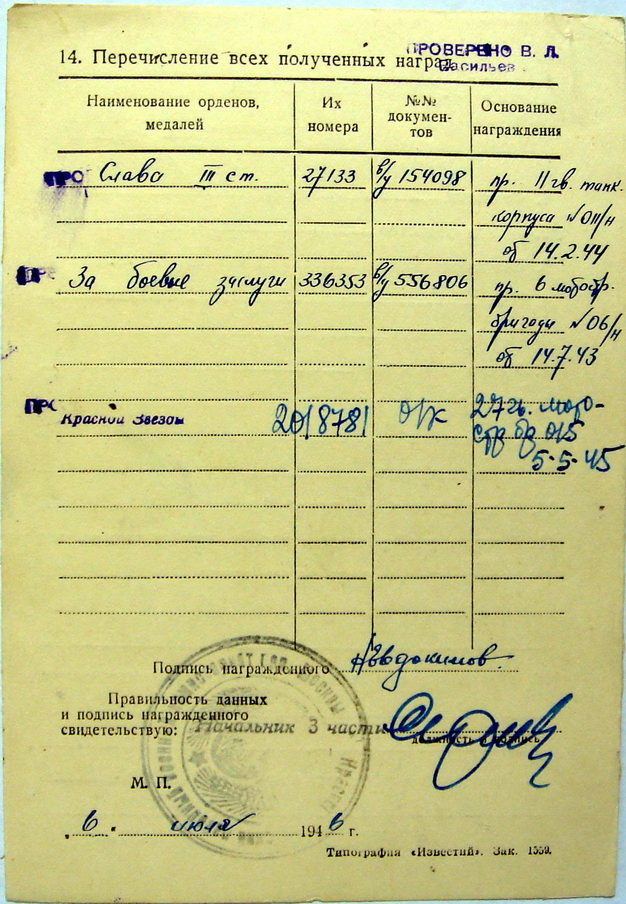 ПРОВЕРЕНО В. Л.
Васильев
14. Перечисление всех полученных наград
Наименование орденов, медалей
Их номера
№№ документов
Основание награждения
ПРО Слава III ст. 27133 в/у 154098 пр. 11 гв. танк.
корпуса № 011/н
от 14.2.44
За боевые заслуги 336353 в/у 556806 пр. 6 мотостр.
бригады № 06/н
от 14.7.43
ПРО
Красной Звезды 2018781 о/к 27 гв. мото-
стр бр 015
5-5-45
Подпись награжденного Евдокимов
Правильность данных
и подпись награжденного
свидетельствую: Начальник 3 части
должность и подпись
М. П.
"6" июля 1946 г.
Типография «Известий». Зак. 1559.